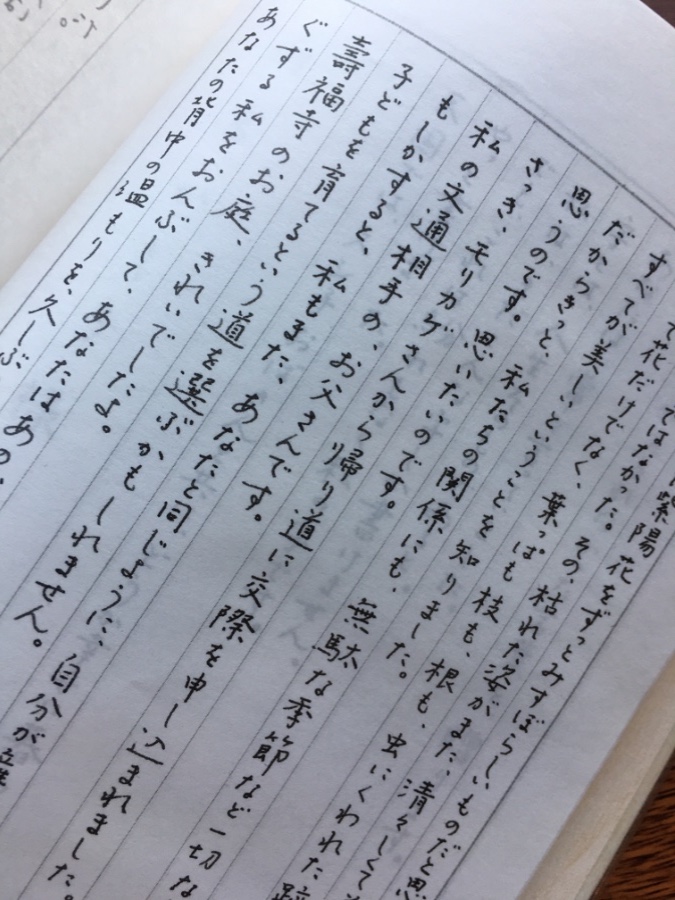 紫陽花をずっとみすぼらしいものだと思
ではなかった。その、枯れた姿がまた、清々しくて
て花だけでなく、葉っぱも枝も、根も、虫にくわれた跡
すべてが美しいということを知りました。
だからきっと、私たちの関係にも、無駄な季節など一切な
思うのです。思いたいのです。
さっき、モリカゲさんから帰り道に交際を申し込まれました。
私の文通相手の、お父さんです。
もしかすると、私もまた、あなたと同じように、自分が産
子どもを育てるという道を選ぶかもしれません。
壽福寺のお庭、きれいでしたよ。
ぐずる私をおんぶして、あなたはあの、
あなたの背中の温もりを、久しぶ